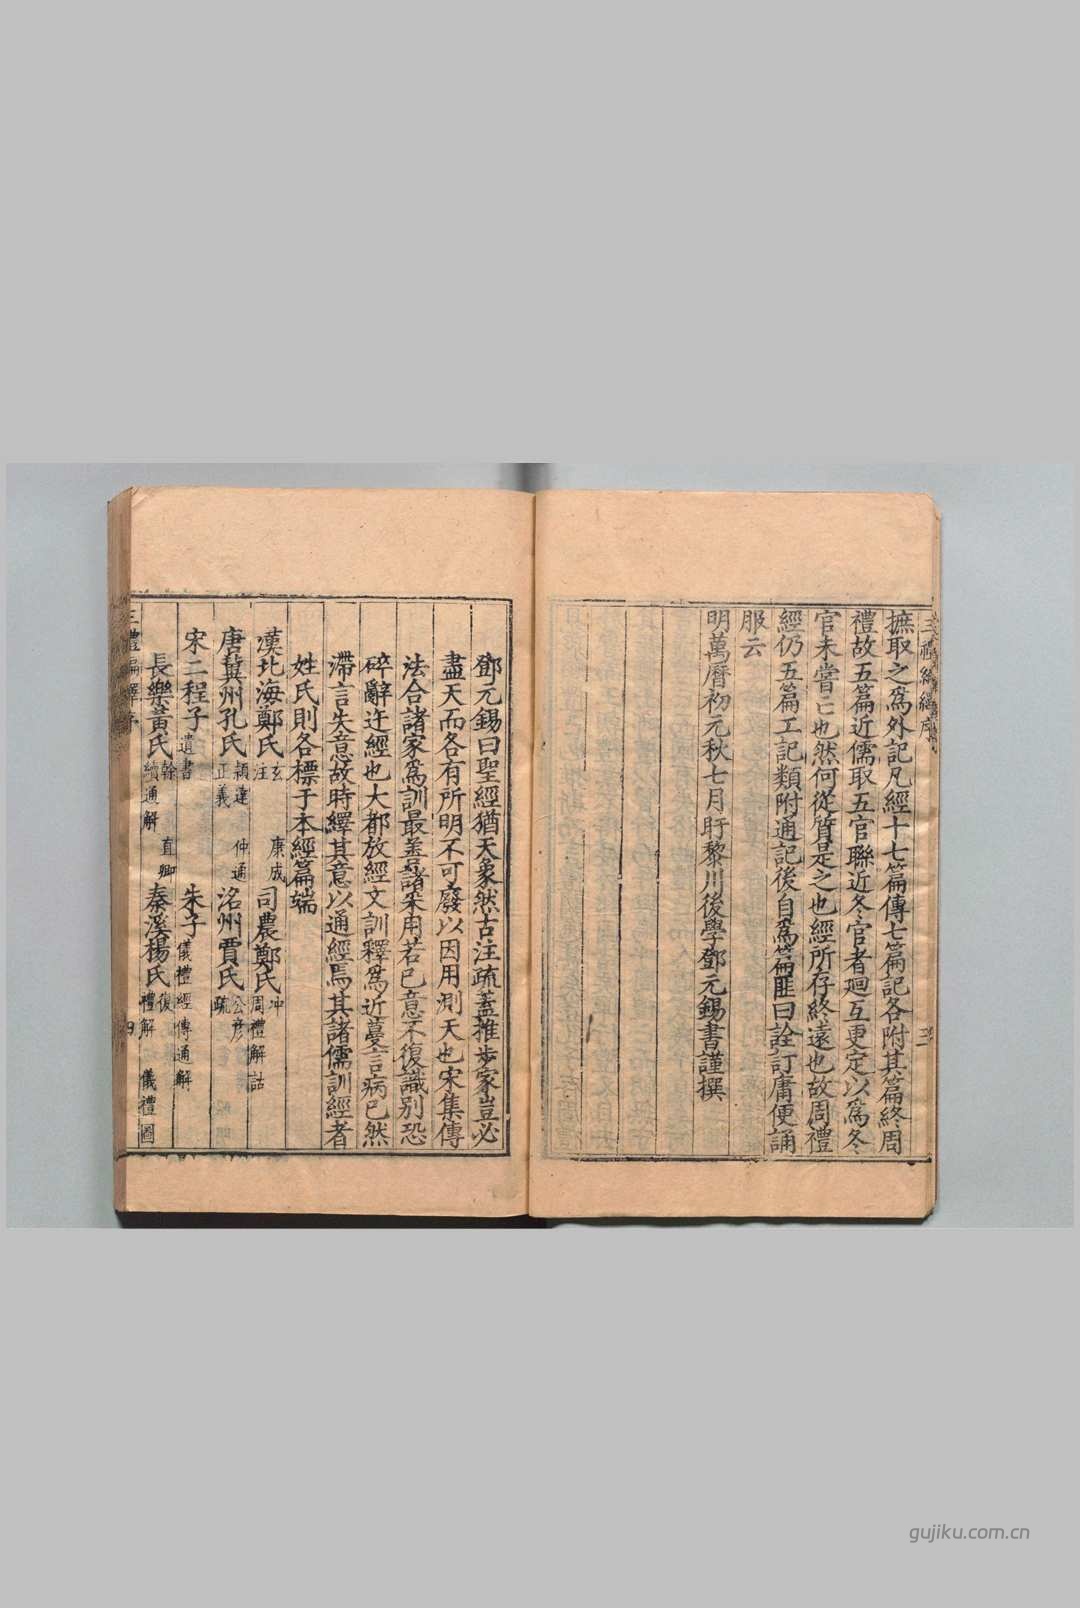 摭取之爲外記凡經十七篇傳七篇記各附其篇終周
禮故五篇近儒取五官聯近冬官者廻互更定以爲冬
官未嘗亡也然何從質是之也經所存終遠也故周禮
經仍五篇工記類附通記後自爲篇匪曰詮訂庸便誦
服云
明萬曆初元秋七月盱黎川後學鄧元錫書謹撰
鄧元錫曰聖經猶天象然古注疏蓋推步家豈必
盡天而各有所明不可廢以因用測天也宋集傳
法合諸家爲訓最善諸采用若已意不復識別恐
碎辭迕經也大都放經文訓釋爲近蔓言病已然
滯言失意故時繹其意以通經焉其諸儒訓經者
姓氏則各標于本經篇端
漢北海鄭氏 玄 康成 注 司農鄭氏 冲 周禮解詁
唐冀州孔氏 穎達 仲通 正義 洛州賈氏 公彦 疏
宋二程子 遺書 朱子 儀禮經傳通解
長樂黃氏 榦 直卿 續通解 秦溪楊氏 復 禮解 儀禮圖
三禮編繹序
gujiku.com.cn